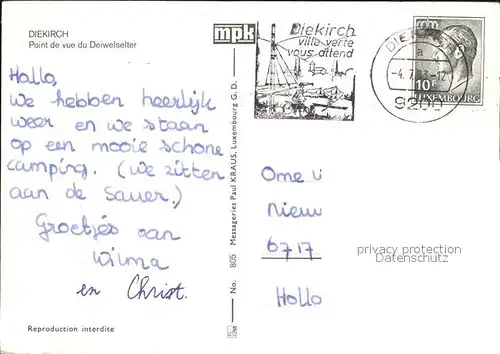 DIEKIRCH
Point de vue du Deiwelselter
mpk
Diekirch
ville verte
vous attend
DIEKIRCH
-4.7.8
9200
10F
LUXEMBOURG
Hallo,
We hebben heerlijk
weer en we staan
op een mooie schone
camping. (We zitten
aan de Sauer.)
Groetjes van
Wilma
en Christ.
No. 805 Messageries Paul KRAUS, Luxembourg G. D.
Ome
Nieuw
6717
Hollo
privacy protection
Datenschutz
Reproduction interdite